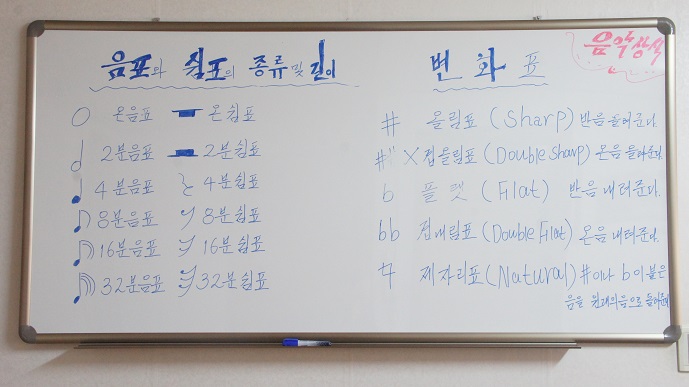 음악상식
음표와 쉼표의 종류 및 길이
온음표 온쉼표
2분음표 2분쉼표
4분음표 4분쉼표
8분음표 8분쉼표
16분음표 16분쉼표
32분음표 32분쉼표
변화표
# 올림표 (Sharp) 반음 올려준다.
#" X 겹올림표 (Double Sharp) 온음 올려준다.
b 플랫 (Flat) 반음 내려준다.
bb 겹내림표 (Double Flat) 온음 내려준다.
♮ 제자리표 (Natural) #이나 b이 붙은
음을 원래의 음으로 돌려준다